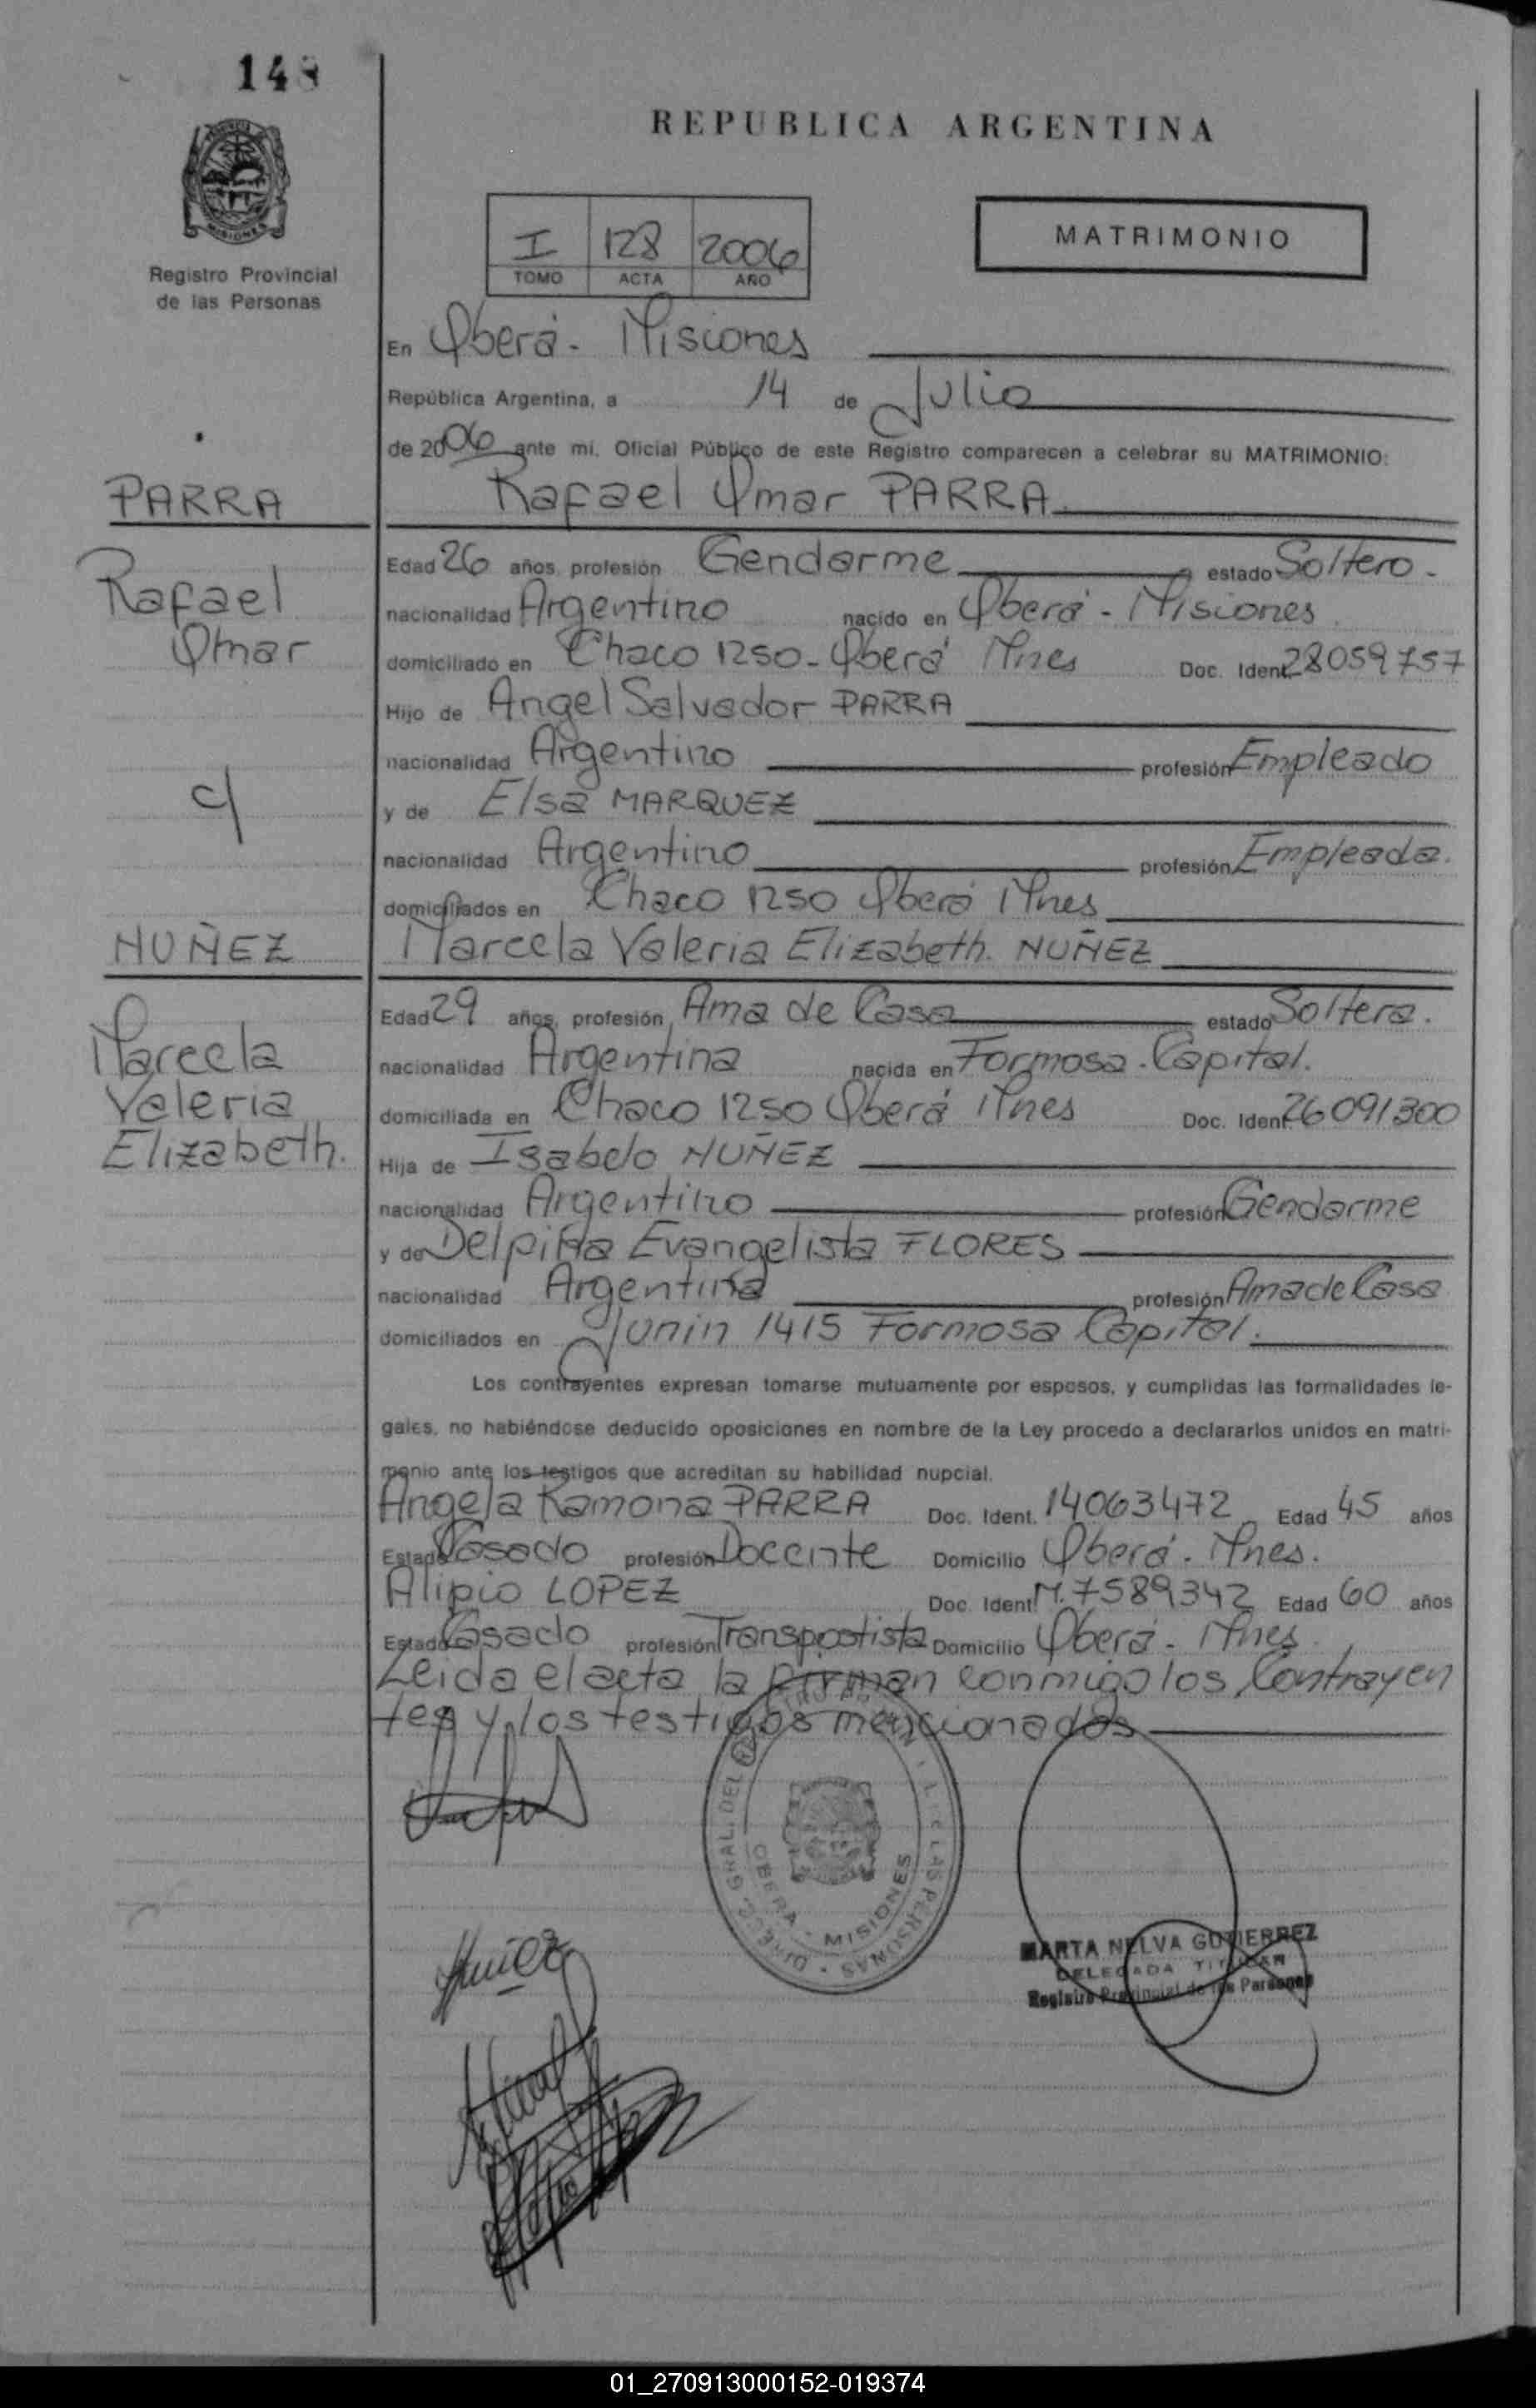 148
REPUBLICA ARGENTINA
MATRIMONIO
I 128 2006
TOMO ACTA AÑO
Registro Provincial
de las Personas
En Oberá - Misiones
República Argentina, a 14 de Julio
de 2006 ante mi, Oficial Público de este Registro comparecen a celebrar su MATRIMONIO:
PARRA
Rafael Omar PARRA
Edad 26 años, profesión Gendarme estado Soltero.
Rafael
Omar
nacionalidad Argentino nacido en Oberá - Misiones
domiciliado en Chaco 1250 - Oberá Mnes Doc. Ident. 28059757
Hijo de Angel Salvador PARRA
nacionalidad Argentino profesión Empleado
c/
y de Elsa MARQUEZ
nacionalidad Argentino profesión Empleada.
domiciliados en Chaco 1250 Oberá Mnes
NUÑEZ
Marcela Valeria Elizabeth. NUÑEZ
Edad 29 años, profesión Ama de Casa estado Soltera.
Marcela
Valeria
Elizabeth.
nacionalidad Argentina nacida en Formosa - Capital.
domiciliada en Chaco 1250 Oberá Mnes Doc. Ident. 26091300
Hija de Isabelo NUÑEZ
nacionalidad Argentino profesión Gendarme
y de Delpina Evangelista FLORES
nacionalidad Argentina profesión Ama de Casa
domiciliados en Junin 1415 Formosa Capital.
Los contrayentes expresan tomarse mutuamente por esposos, y cumplidas las formalidades le-
gales, no habiéndose deducido oposiciones en nombre de la Ley procedo a declararlos unidos en matri-
monio ante los testigos que acreditan su habilidad nupcial.
Angela Ramona PARRA Doc. Ident. 14063472 Edad 45 años
Estado Casado profesión Docente Domicilio Oberá - Mnes.
Alipio LOPEZ Doc. Ident. M. 7589342 Edad 60 años
Estado Casado profesión Transpostista Domicilio Oberá - Mnes.
Leida el acta la firman conmigo los Contrayen
tes y los testigos mencionados
DIREC. GRAL. DEL REGISTRO PROVINCIAL DE LAS PERSONAS
OBERA - MISIONES
Nuñez
MARTA NELVA GUTIERREZ
DELEGADA TITULAR
Registro Provincial de las Personas
01_270913000152-019374